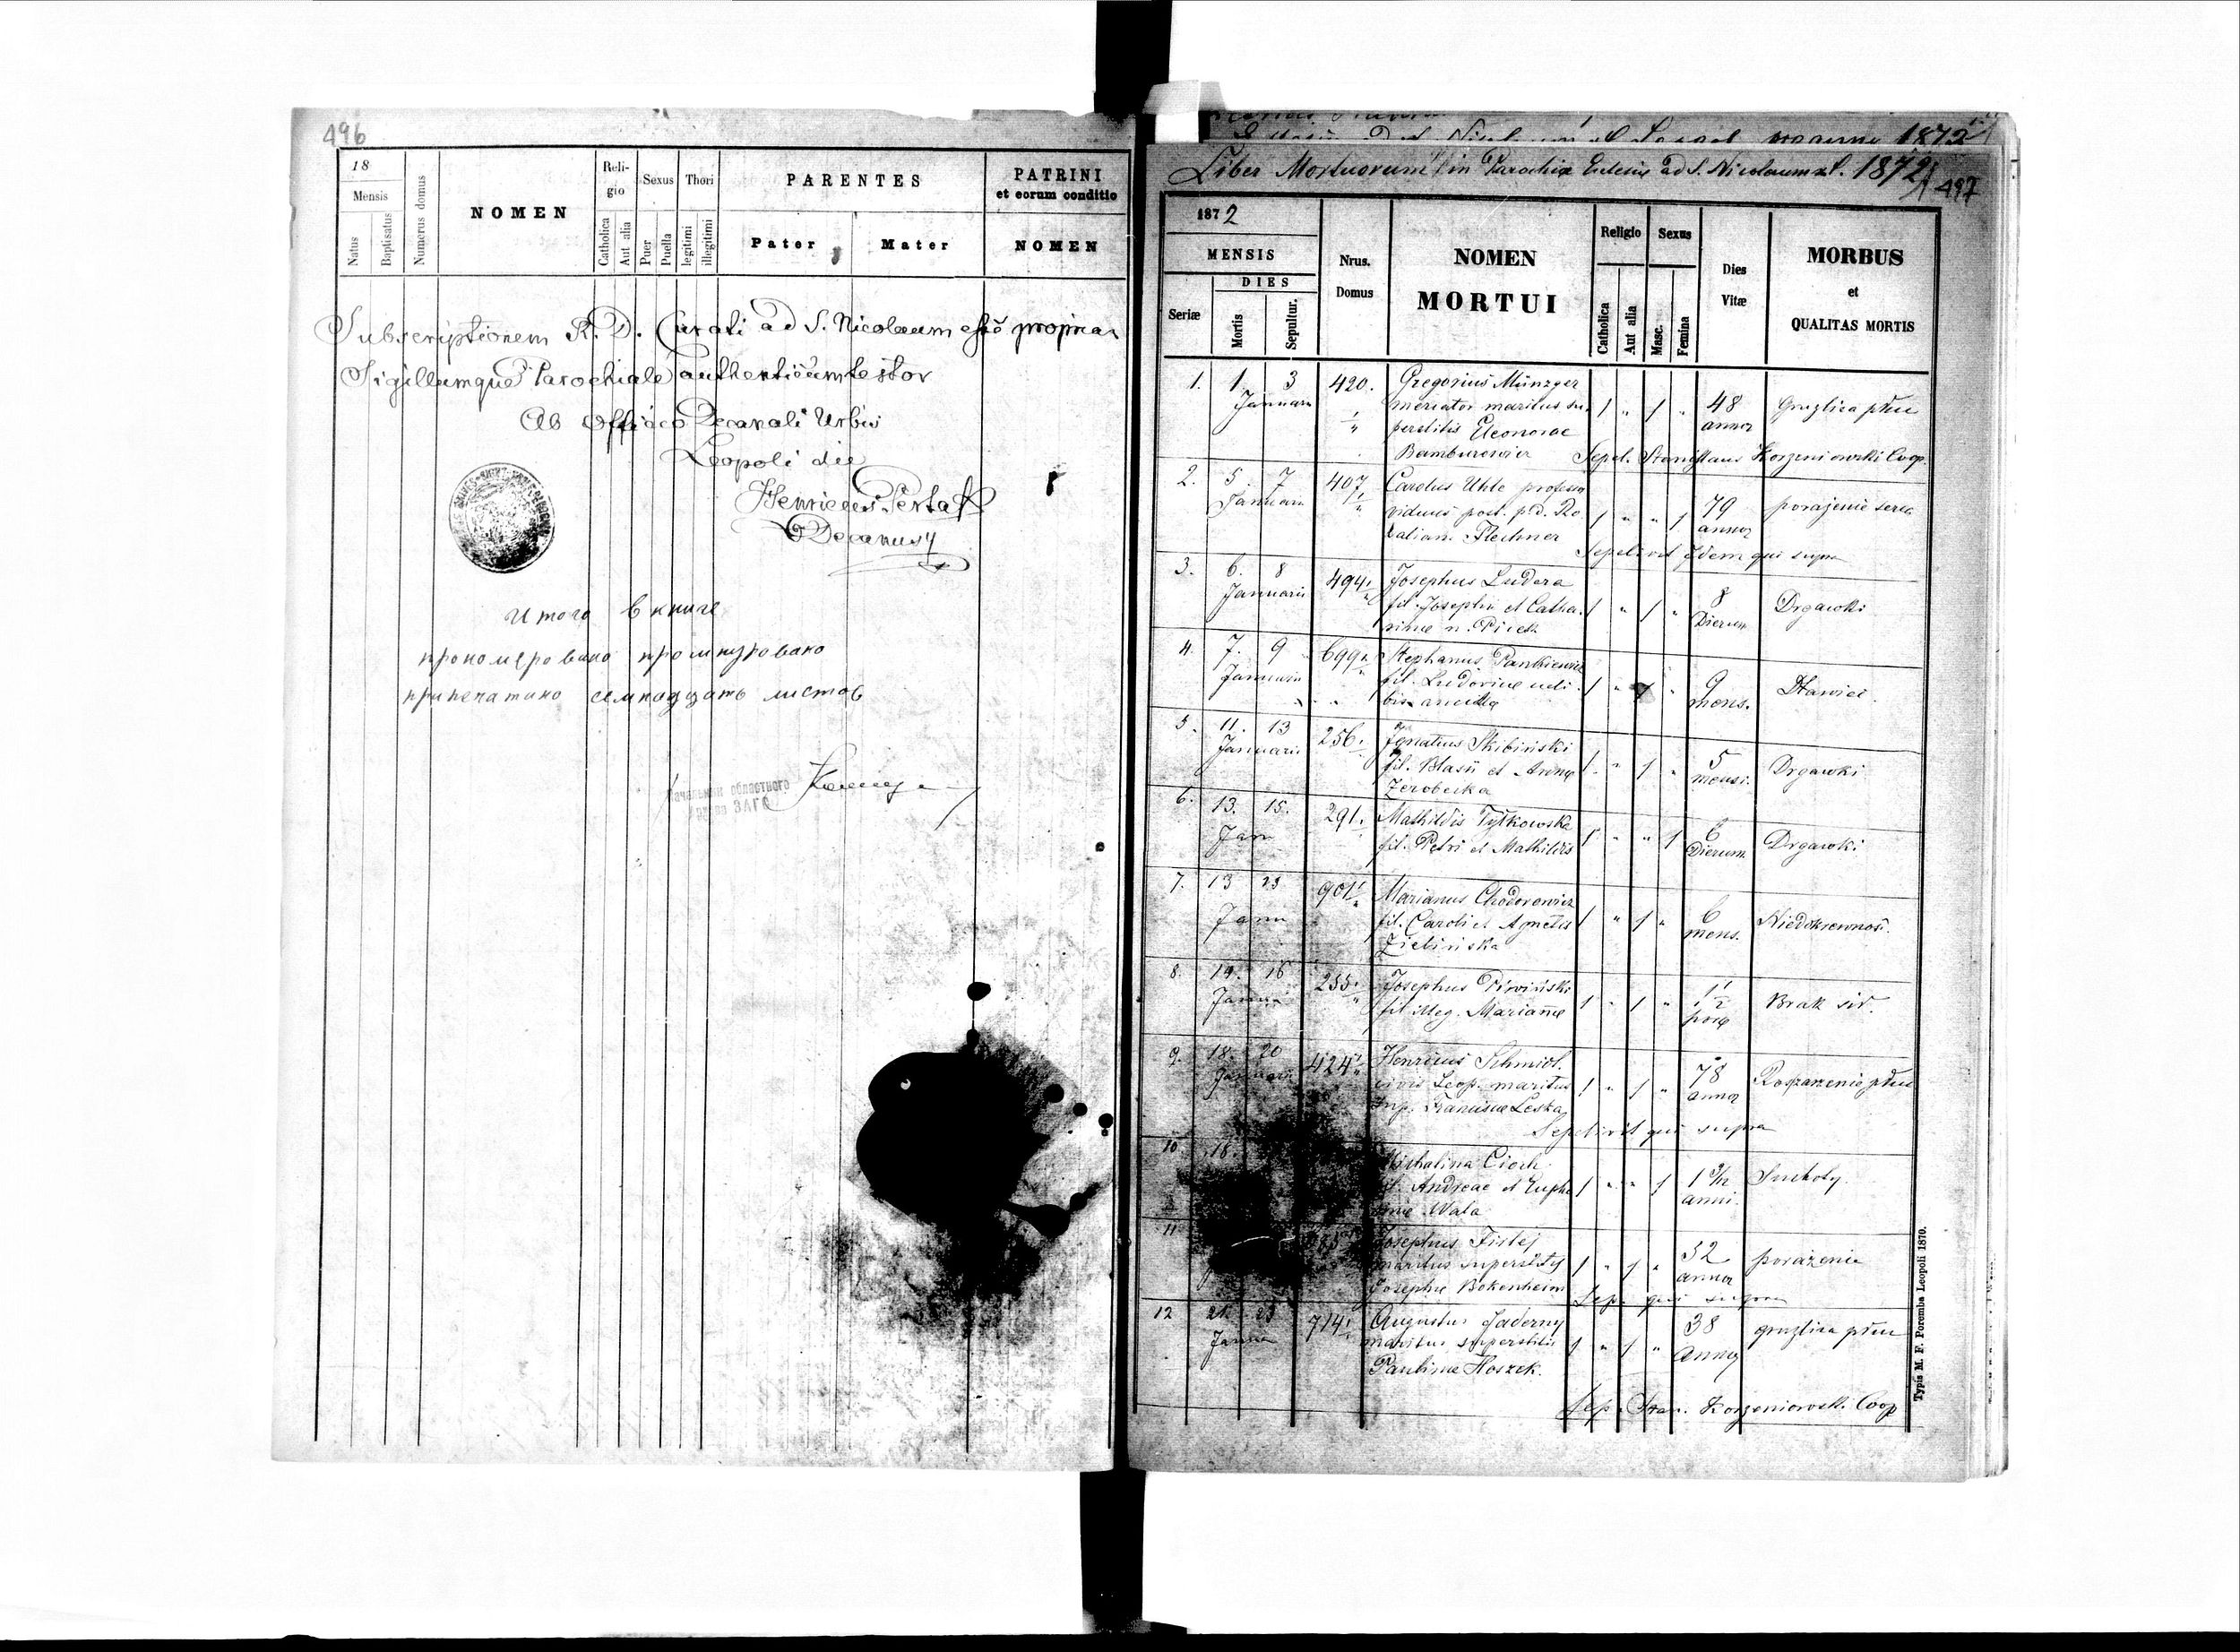 496
18
Mensis
Natus
Baptisatus
Numerus domus
NOMEN
Reli-
gio
Catholica
Aut alia
Sexus
Puer
Puella
Thori
legitimi
illegitimi
PARENTES
Pater
Mater
PATRINI
et eorum conditio
NOMEN
Subscriptionem R. D. Curati ad S. Nicolaum esse propriam
Sigillumque Parochiale authenticum testor
Ab Officio Decanali Urbis
Leopoli die
Henricus
Decanus
Итого в книге
прономеровано прошнуровано
припечатано семнадцать листов
Начальник областного
отдела ЗАГС
1872
Liber Mortuorum in Parochia Eclesiae ad S. Nicolaum 1872
497
1872
MENSIS
DIES
Seriæ
Mortis
Sepultur.
Nrus.
Domus
NOMEN
MORTUI
Religio
Catholica
Aut alia
Sexus
Masc.
Femina
Dies
Vitæ
MORBUS
et
QUALITAS MORTIS
1. 1. 3 420. Gregorius Münzger
Januarii mercator maritus su- 1 " 1 " 48 Gruzlica płuc
perstitis Eleonorae annor
Bamburowicz Sepel. Stanislaus Korzeniowski Coop.
2. 5. 7 407 Carolus Uhle professor
Januarii viduus post. p. d. Ro 1 " " 1 79 porażenie serca
salian. Flechner annor
Sepelivit Idem qui supra
3. 6. 8 494 Josephus Ludera
Januarii fil. Josephi et Catha- 1 " 1 " 8 Drgawki
rinae n. Picek Dierum
4. 7. 9 699 Stephanus Pankiewicz
Januarii fil. Ludovicae coeli- 1 " 1 " 9 Dławiec
bis ancillae mens.
5. 11. 13 256. Ignatius Skibiński
Januarii fil. Blasii et Annae 1 " 1 " 5 Drgawki
Zerobecka mensi.
6. 13. 15. 291. Mathildis Tytkowska
Jan fil. Petri et Mathildis 1 " " 1 6 Drgawki
Dierum
7. 13 901 Marianus Chodorowicz
Janu fil. Caroli et Agnetis 1 " 1 " 6 Niedokrewność.
Ziebińska mens.
8. 14. 16 255. Josephus
fil. illeg. Marianne 1 " 1 " 1/2 Brak sił.
horae
9. 18. 20 424 Henricus Schmidt.
Januarii civis Leop. maritus 1 " 1 " 78 płuc
sup. Franciscae Leska annor
Sepelivit qui supra
10. 18. Michalina Cioch
fil. Andreae et Euphe 1 " " 1 1 Suchoty
miae Wala anni.
11 Josephus Firlej
maritus superstitis 1 " 1 " 52 porażenie
Josephae Bokenheim annor
Sep. qui supra
12 21. 23 714. Augustus Jaderny 38 gruzlica płuc
Janua maritus superstitis 1 " 1 " annor
Paulinae Hoszek.
Sep. Stan. Korzeniowski Coop
Typis M. F. Poremba Leopoli 1870.